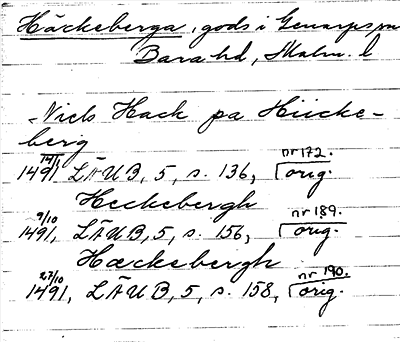 Häckeberga, gods i Genarps sn
Bara hd, Malm. l
Niels Hack pa Hücke-
berg
14/1 1491, LÄUB, 5, s. 136, nr 172. orig.
Heckebergh
9/10 1491, LÄUB, 5, s. 156, nr 189. orig.
Hæckebergh
27/10 1491, LÄUB, 5, s. 158, nr 190. orig.